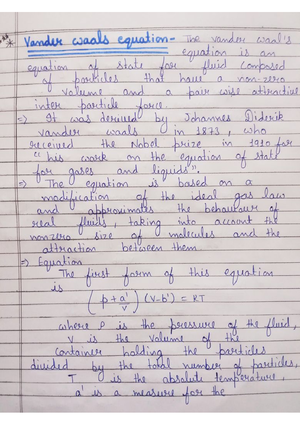 * Vander waals equation- The vander waal's
equation is an
equation of state for fluid composed
of particles that have a non-zero
volume and a pair wise attractive
inter particle force.
=> It was derived by Johannes Diderik
vander waals in 1873, who
received the Nobel prize in 1910 for
"his work on the equation of state
for gases and liquids".
=> The equation is based on a
modification of the ideal gas law
and approximates the behaviour of
real fluids, taking into account the
nonzero size of molecules and the
attraction between them.
=> Equation
The first form of this equation
is
(p + a'/v) (v-b') = RT
where P is the pressure of the fluid,
v is the volume of the
container holding the particles
divided by the total number of particles,
T is the absolute temperature,
a' is a measure for the